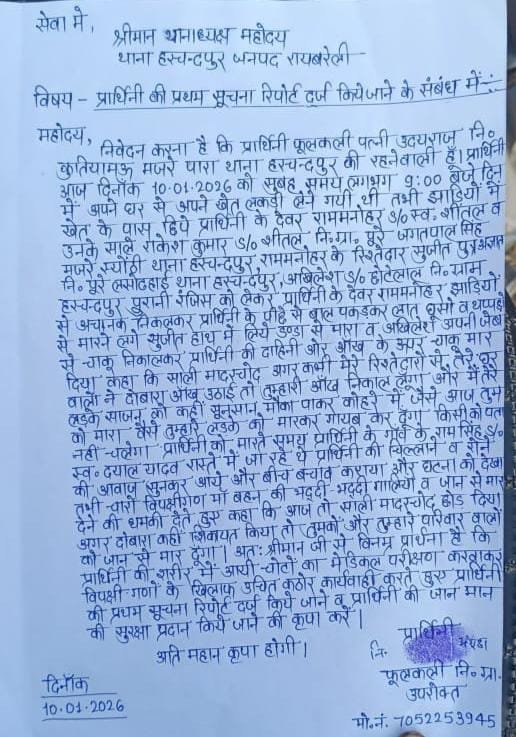 सेवा में,
श्रीमान थानाध्यक्ष महोदय
थाना हरचन्दपुर जनपद रायबरेली
विषय - प्रार्थिनी की प्रथम सूचना रिपोर्ट दर्ज किये जाने के संबंध में :-
महोदय,
निवेदन करना है कि प्रार्थिनी फूलकली पत्नी उदयराज नि०
कुतियामऊ मजरे पारा थाना हरचन्दपुर की रहनेवाली हूँ। प्रार्थिनी
आज दिनाँक 10.01.2026 को सुबह समय लगभग 9:00 बजे दिन
में अपने घर से अपने खेत लकड़ी लेने गयी थी तभी झाड़ियों में
खेत के पास छिपे प्रार्थिनी के देवर राममनोहर S/० स्व० शीतल व
उनके साले राकेश कुमार S/० शीतल नि०ग्रा० पूरे जगतपाल सिंह
मजरे स्योंठी थाना हरचन्दपुर, राममनोहर के रिश्तेदार सुजीत पुत्र अज्ञात
नि० पूरे थाना हरचन्दपुर, अखिलेश S/० छोटेलाल नि० ग्राम
हरचन्दपुर पुरानी रंजिस को लेकर प्रार्थिनी के देवर राममनोहर झाड़ियों
से अचानक निकलकर प्रार्थिनी के पीछे से बाल पकड़कर लात घूसो व थप्पड़ो
से मारने लगे सुजीत हाथ में लिये डण्डा से मारा व अखिलेश अपनी जेब
से चाकू निकालकर प्रार्थिनी की दाहिनी ओर आँख के ऊपर चाकू मार
दिया कहा कि साली मादरचोद अगर कभी मेरे रिश्तेदारों से तेरे घर
वालों ने दोबारा आँख उठाई तो तुम्हारी आँख निकाल लूँगा और मैं तेरे
लड़के साजन को कहीं सूनसान मौका पाकर कोहरे में जैसे आज तुम
को मारा वैसे तुम्हारे लड़के को मारकर गायब कर दूंगा किसी को पता
नहीं चलेगा। प्रार्थिनी को मारते समय प्रार्थिनी के गाँव के रामसिंह S/०
स्व० दयाल यादव रास्ते में जा रहे थे प्रार्थिनी की चिल्लाने व रोने
की आवाज सुनकर आये और बीच बचाव कराया और घटना को देखा
तभी चारो विपक्षीगण माँ बहन की भद्दी-भद्दी गालियाँ व जान से मार
देने की धमकी देते हुए कहा कि आज तो साली मादरचोद छोड़ दिया
अगर दोबारा कहीं शिकायत किया तो तुमको और तुम्हारे परिवार वालों
को जान से मार दूंगा। अतः श्रीमान जी से विनम्र प्रार्थना है कि
प्रार्थिनी की शरीर में आयी चोटों का मेडिकल परीक्षण करवाकर
विपक्षीगणों के खिलाफ उचित कठोर कार्यवाही करते हुए प्रार्थिनी
की प्रथम सूचना रिपोर्ट दर्ज किये जाने व प्रार्थिनी की जान मान
की सुरक्षा प्रदान किये जाने की कृपा करें।
अति महान कृपा होगी।
प्रार्थिनी
नि० अंगूठा
फूलकली नि० ग्रा०
उपरोक्त
दिनाँक
10.01.2026
मो.नं. 7052253945